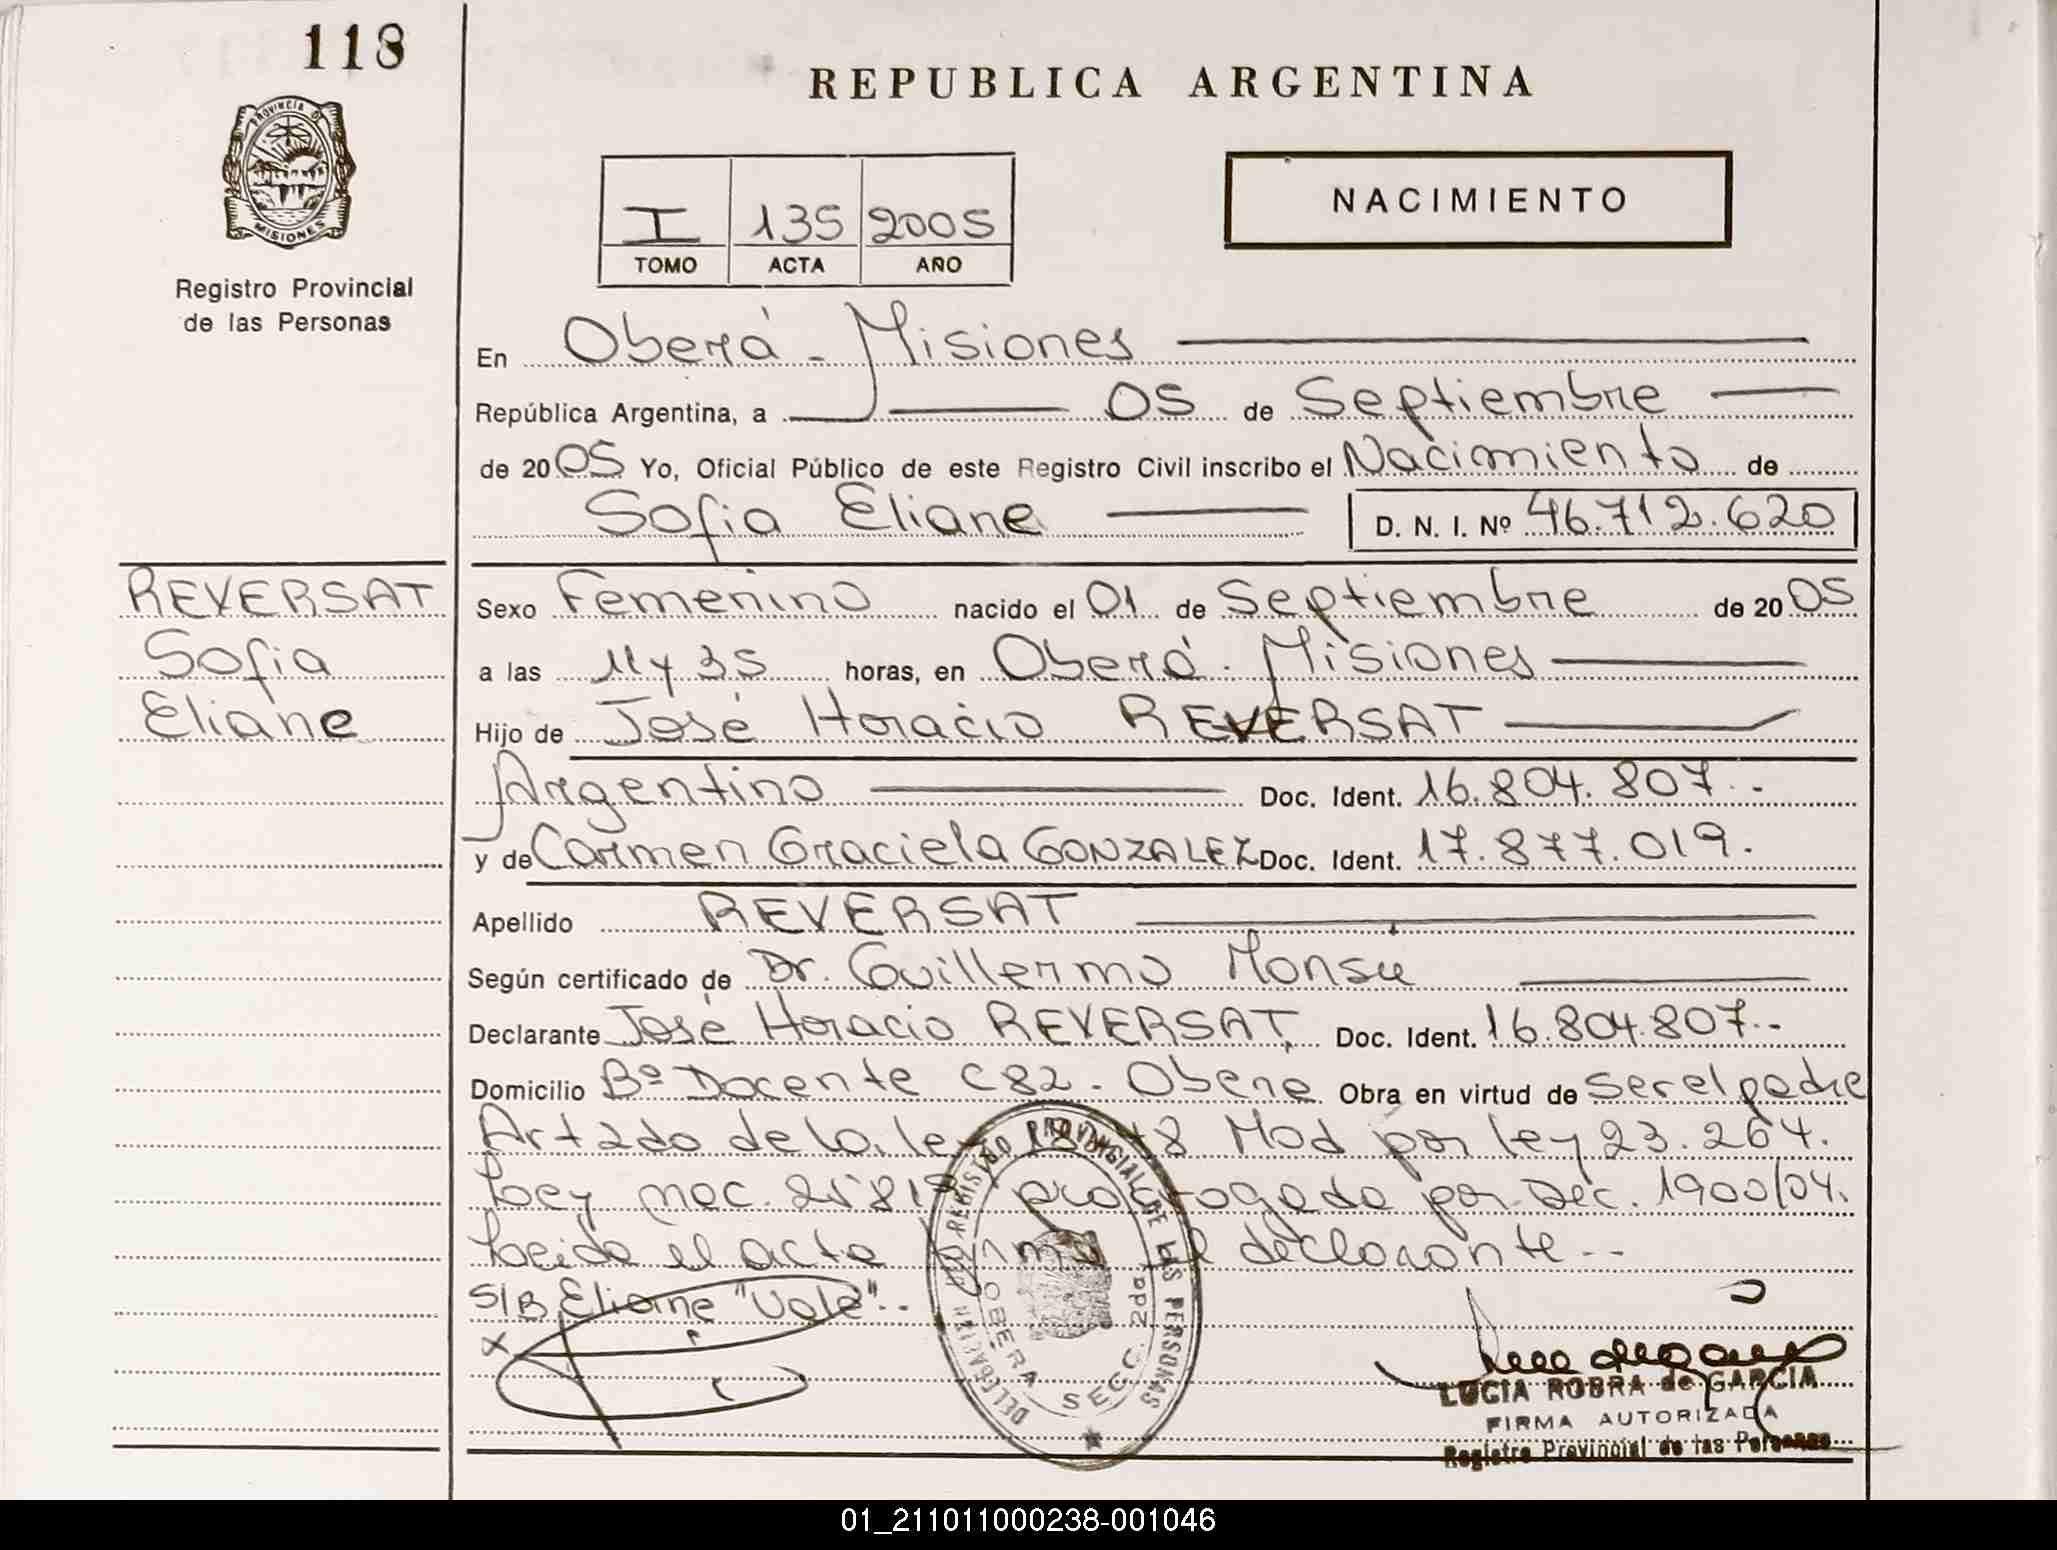 118
PROVINCIA DE
MISIONES
Registro Provincial
de las Personas
REPUBLICA ARGENTINA
I 135 2005
TOMO ACTA AÑO
NACIMIENTO
En Oberá - Misiones
República Argentina, a 05 de Septiembre
de 2005 Yo, Oficial Público de este Registro Civil inscribo el Nacimiento de
Sofia Eliane D. N. I. Nº 46.712.620
REVERSAT
Sofia
Eliane
Sexo Femenino nacido el 01 de Septiembre de 2005
a las 11 y 35 horas, en Oberá - Misiones
Hijo de José Horacio REVERSAT
Argentino Doc. Ident. 16.804.807.-
y de Carmen Graciela GONZALEZ Doc. Ident. 17.877.019.
Apellido REVERSAT
Según certificado de Dr. Guillermo Monsú
Declarante José Horacio REVERSAT. Doc. Ident. 16.804.807.-
Domicilio Bº Docente C82 - Obera Obra en virtud de ser el padre
Art 2do de la ley Mod por ley 23.264.
Ley nac. 25819 prorrogada por Dec. 1900/04.
Leida el acta firma el declarante --
S/B Eliane "Vale".-
DELEGACION DEL REGISTRO PROVINCIAL DE LAS PERSONAS
OBERA SECC. 2da
LUCIA ROBRA de GARCIA
FIRMA AUTORIZADA
Registro Provincial de las Personas
01_211011000238-001046